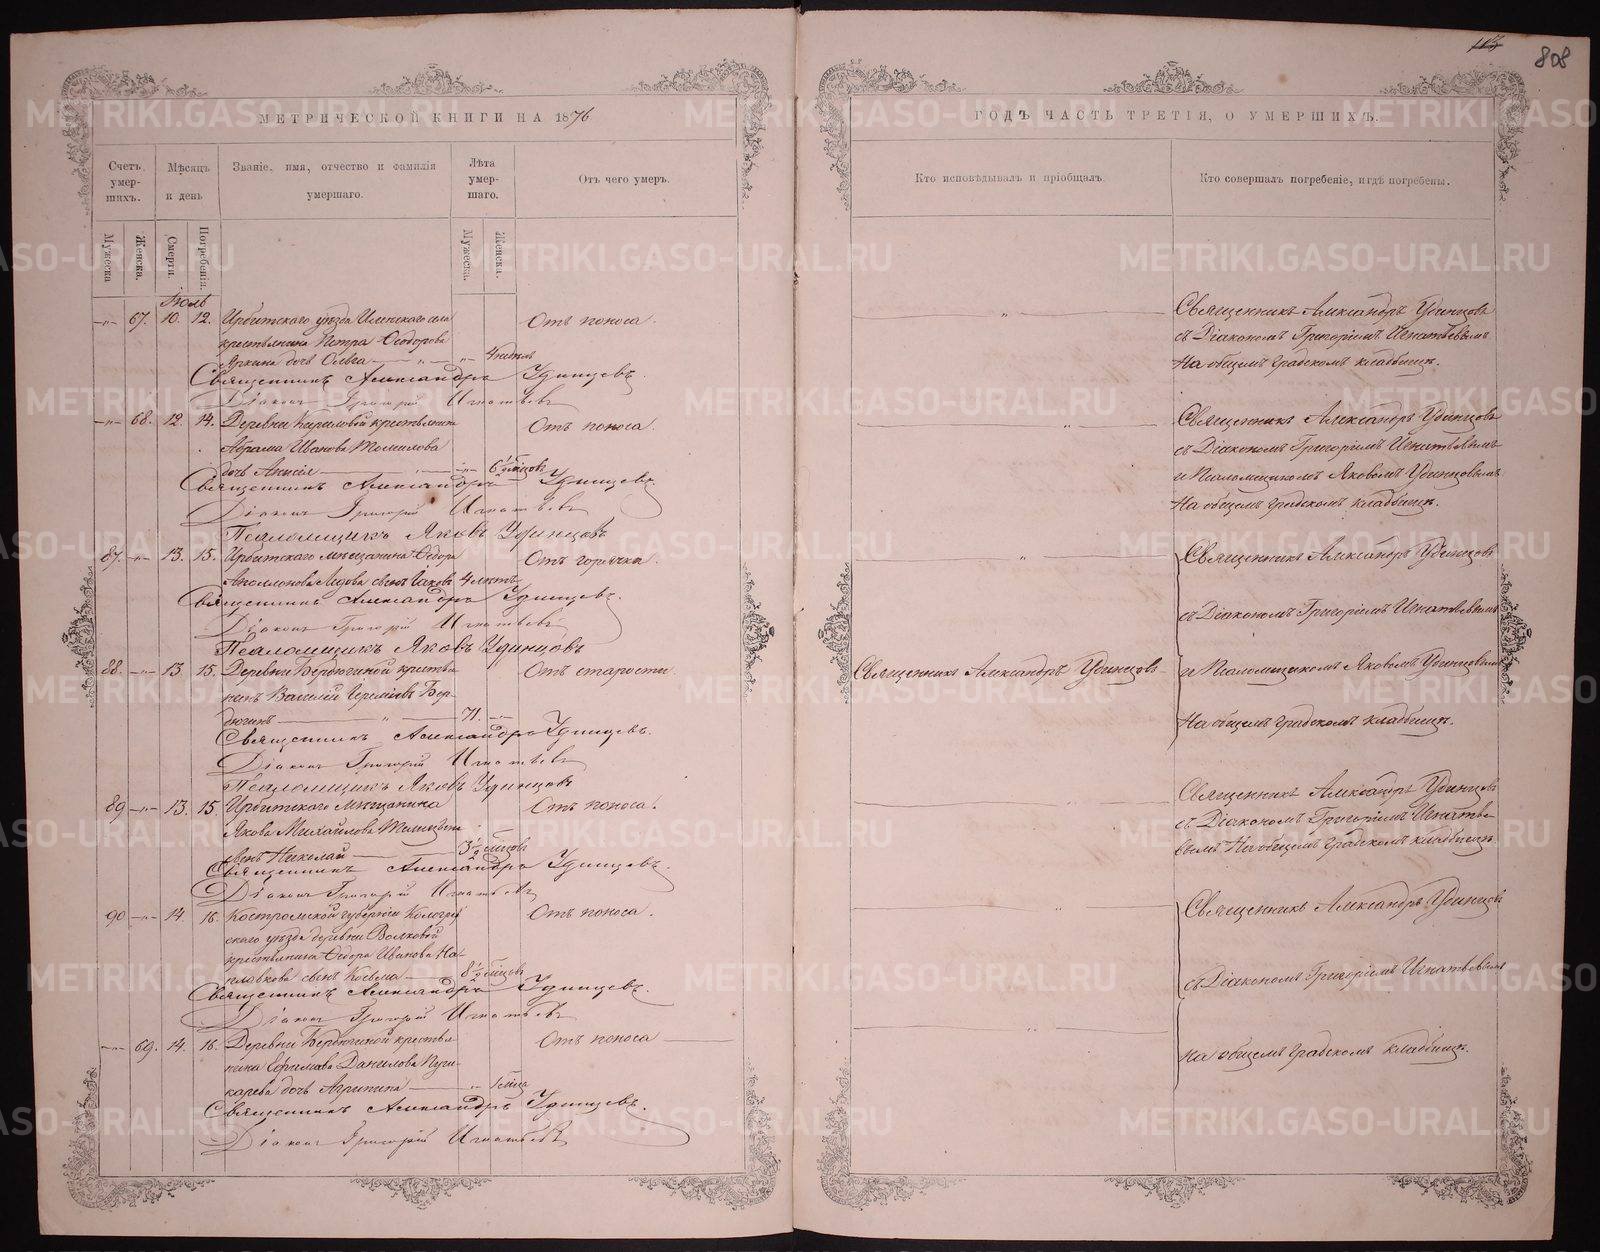 113 808
МЕТРИЧЕСКОЙ КНИГИ НА 1876
ГОДЪ ЧАСТЬ ТРЕТІЯ, О УМЕРШИХЪ.
Счетъ умерших.
Мѣсяцъ и день
Званіе, имя, отчество и фамилія умершаго.
Лѣта умершаго.
Отъ чего умеръ.
Кто исповѣдывалъ и пріобщалъ.
Кто совершалъ погребеніе, и гдѣ погребены.
Мужеска
Женска.
Смерти.
Погребенія.
Мужеска.
Женска.
Іюль
67. 10. 12. Ирбитскаго уѣзда села
крестьянина Петра Ѳеодорова
дочь Ольга 4 недѣль
Отъ поноса.
Священникъ Александръ Удинцевъ.
Діаконъ Григорій Игнатьевъ
Священникъ Александръ Удинцовъ
съ Діакономъ Григоріемъ Игнатьевымъ
На общемъ градскомъ кладбищѣ.
68. 12. 14. Деревни Кириловой крестьянина
Абрама Иванова Томилова
дочь 6½ мѣсцовъ
Отъ поноса.
Священникъ Александръ Удинцевъ
Діаконъ Григорій Игнатьевъ
Псаломщикъ Яковъ Удинцовъ
Священникъ Александръ Удинцовъ
съ Діакономъ Григоріемъ Игнатьевымъ
и Псаломщикомъ Яковомъ Удинцовымъ
На общемъ градскомъ кладбищѣ.
87. 13. 15. Ирбитскаго мѣщанина Ѳедора
Аполлонова сынъ Іаковъ 4 лѣтъ
Отъ горячки.
Священникъ Александръ Удинцевъ.
Діаконъ Григорій Игнатьевъ
Псаломщикъ Яковъ Удинцовъ
Священникъ Александръ Удинцовъ
съ Діакономъ Григоріемъ Игнатьевымъ
88. 13. 15. Деревни Бердюгиной крестья-
нинъ Василій Бер-
дюгинъ 71.
Отъ старости
Священникъ Александръ Удинцовъ
Священникъ Александръ Удинцевъ.
Діаконъ Григорій Игнатьевъ
Псаломщикъ Яковъ Удинцовъ
и Псаломщикомъ Яковомъ Удинцовымъ
На общемъ градскомъ кладбищѣ.
89 13. 15. Ирбитскаго мѣщанина
Якова Михайлова
сынъ Николай 3½ мѣсцовъ
Отъ поноса.
Священникъ Александръ Удинцевъ.
Діаконъ Григорій Игнатьевъ
Священникъ Александръ Удинцовъ
съ Діакономъ Григоріемъ Игнатье-
вымъ На общемъ градскомъ кладбищѣ
90 14. 16. Костромской губерніи Кологрив-
скаго уѣзда деревни Волковой
крестьянина Ѳедора Иванова
сынъ Косьма 8½ мѣсцовъ
Отъ поноса.
Священникъ Александръ Удинцевъ.
Діаконъ Григорій Игнатьевъ
Священникъ Александръ Удинцовъ
съ Діакономъ Григоріемъ Игнатьевымъ
69. 14. 16. Деревни Бердюгиной крестья-
нина Данилова
дочь Агрипина 1 мѣсца
Отъ поноса
Священникъ Александръ Удинцевъ.
Діаконъ Григорій Игнатьевъ
на общемъ градскомъ кладбищѣ.
METRIKI.GASO-URAL.RU